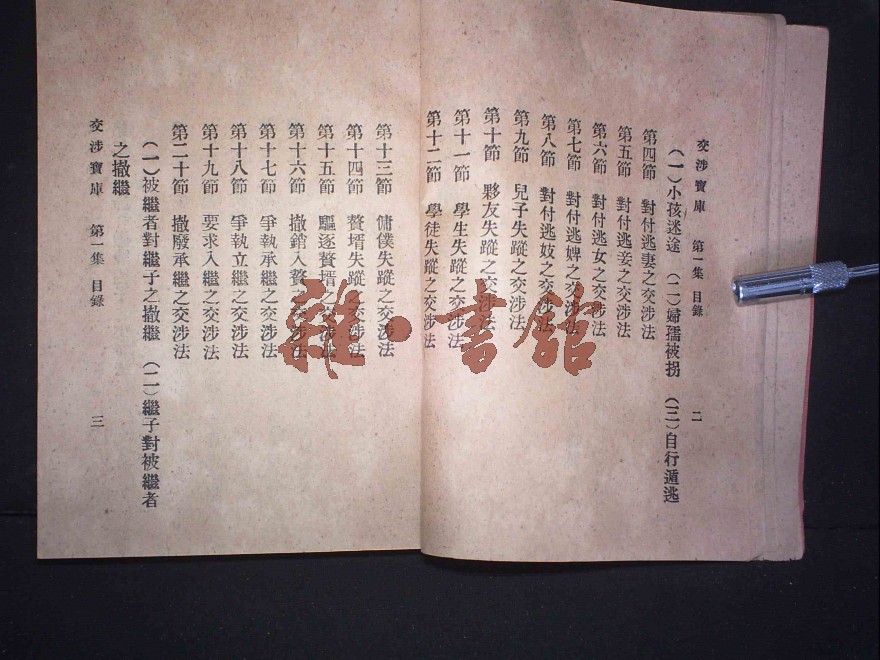 交涉寶庫　第一集　目錄　二
（一）小孩迷途　（二）婦孺被拐　（三）自行遁逃
第四節　對付逃妻之交涉法
第五節　對付逃妾之交涉法
第六節　對付逃女之交涉法
第七節　對付逃婢之交涉法
第八節　對付逃妓之交涉法
第九節　兒子失蹤之交涉法
第十節　夥友失蹤之交涉法
第十一節　學生失蹤之交涉法
第十二節　學徒失蹤之交涉法
第十三節　傭僕失蹤之交涉法
第十四節　贅壻失蹤之交涉法
第十五節　驅逐贅壻之交涉法
第十六節　撤銷入贅之交涉法
第十七節　爭執承繼之交涉法
第十八節　爭執立繼之交涉法
第十九節　要求入繼之交涉法
第二十節　撤廢承繼之交涉法
（一）被繼者對繼子之撤繼　（二）繼子對被繼者
之撤繼
交涉寶庫　第一集　目錄　三
雜·書館